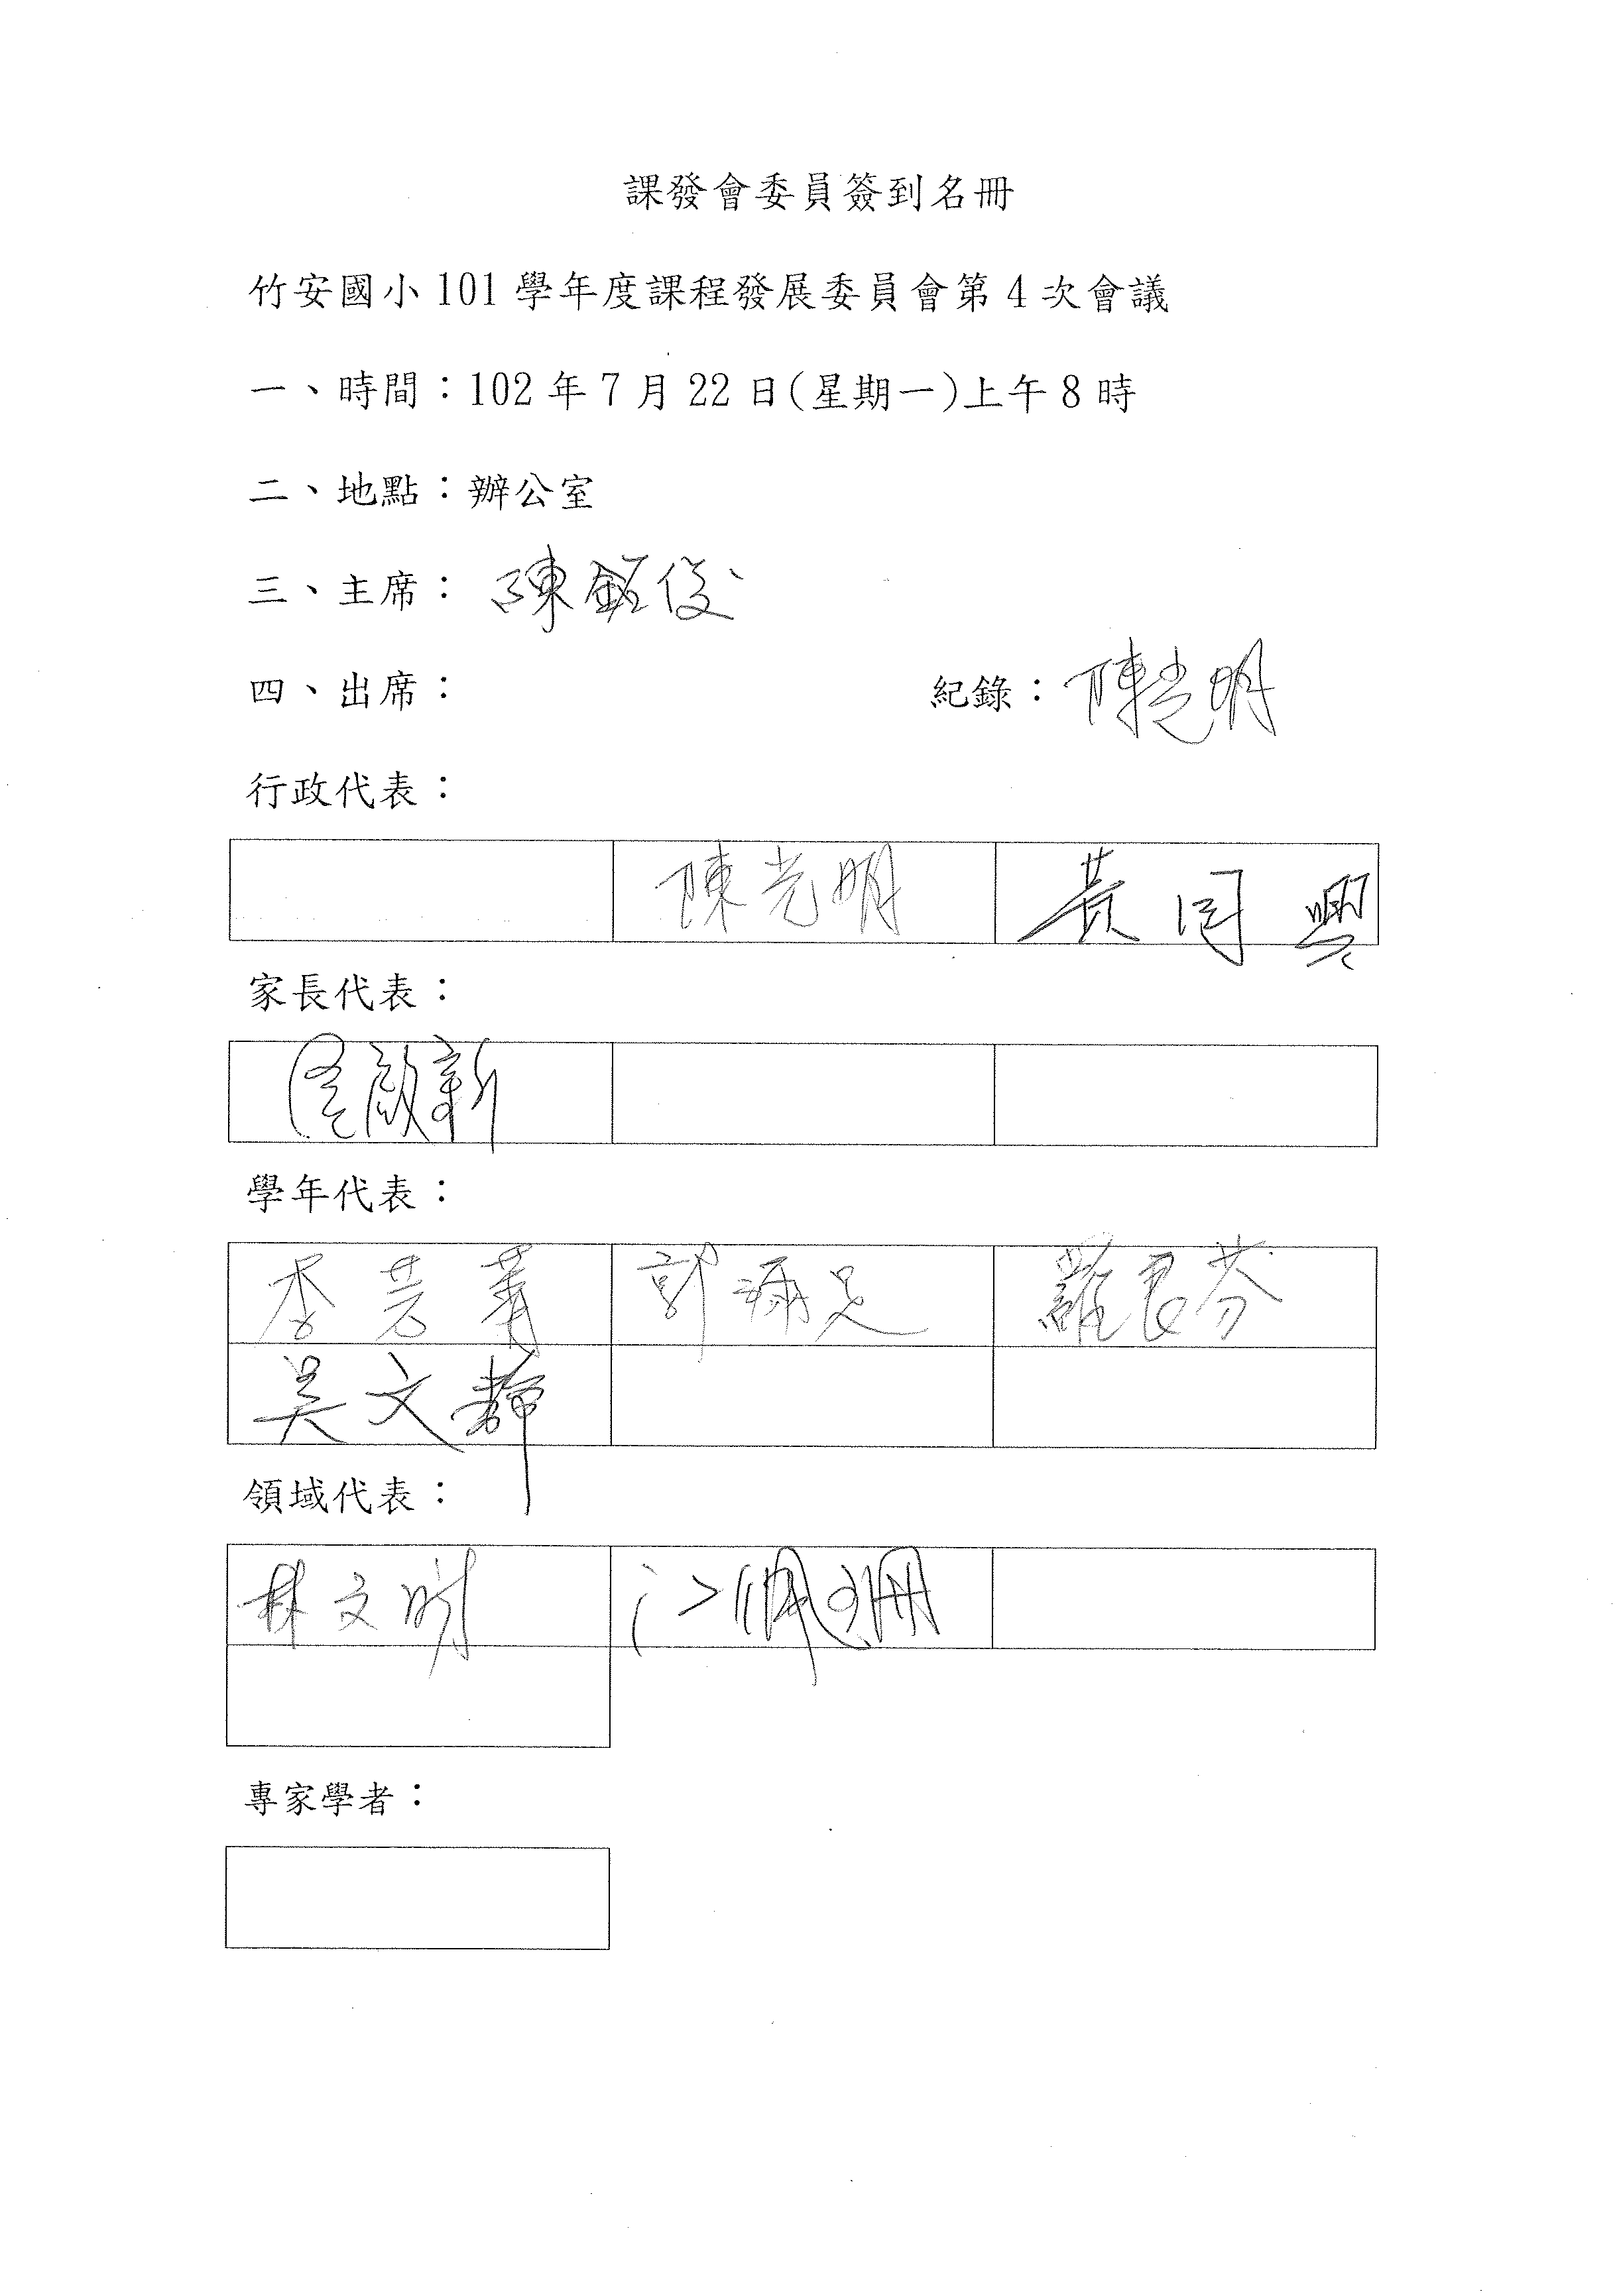 課發會委員簽到名冊
竹安國小101學年度課程發展委員會第4次會議
一、時間：102年7月22日(星期一)上午8時
二、地點：辦公室
三、主席：陳鉅俊
四、出席： 紀錄：陳光明
行政代表：
陳光明 黃同興
家長代表：
新
學年代表：
李 菁 郭滿足 羅良芬
吳文靜
領域代表：
林文明 江佩珊
專家學者：